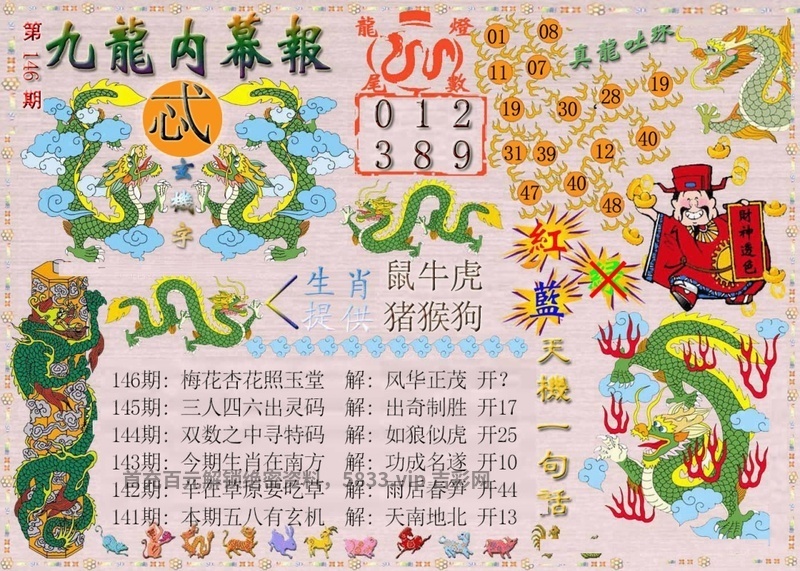 第146期
九龍内幕報
忒
玄機字
龍燈
尾數
0 1 2
3 8 9
真龍吐珠
01 08
11 07
19 30 28 19
31 39 12 40
47 40 48
財神送色
紅
藍
生肖 鼠牛虎
提供 猪猴狗
天機一句話
146期: 梅花杏花照玉堂 解: 风华正茂 开?
145期: 三人四六出灵码 解: 出奇制胜 开17
144期: 双数之中寻特码 解: 如狼似虎 开25
143期: 今期生肖在南方 解: 功成名遂 开10
142期: 羊在草原要吃草 解: 雨后春笋 开44
141期: 本期五八有玄机 解: 天南地北 开13